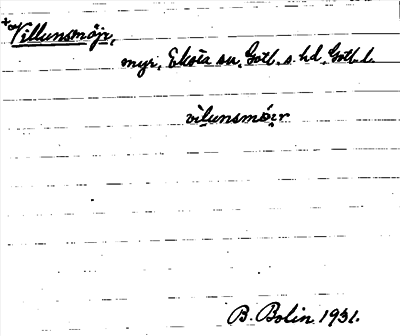 +Villunsmöjr,
myr, Eksta sn, Gotl. s. hd, Gotl. l.
vilunsmöir
B. Bolin 1931.